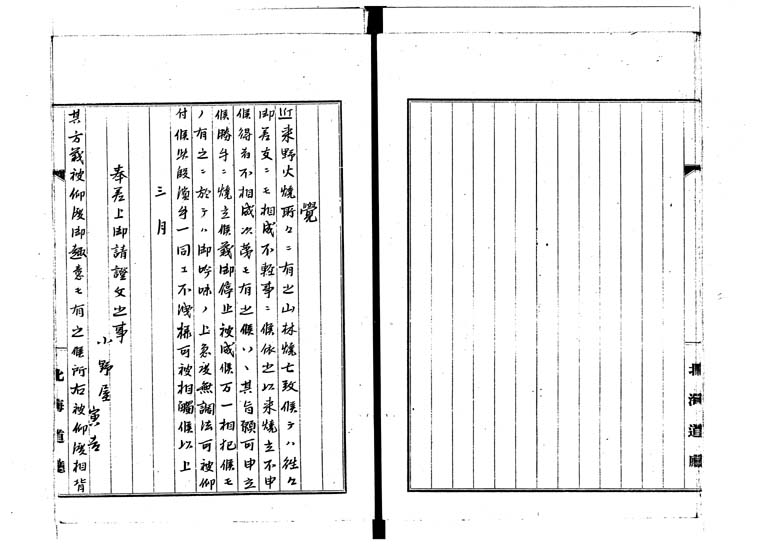 覺
近来野火燒所々ニ有之山林燒亡致候テハ往々
御差支ニモ相成不軽事ニ候依之以来燒立不申
候得者不相成次第モ有之候ハヽ其旨願可申立
候勝手ニ燒立候義御停止被成候万一相犯候モ
ノ有之ニ於テハ御吟味ノ上急度無調法可被仰
付候此段濱手一同エ不洩様可被相觸候以上
三月
奉差上御請證文之事
小野屋
寅吉
其方義被仰渡御趣意モ有之候所右被仰渡相背
北海道廳
北海道廳